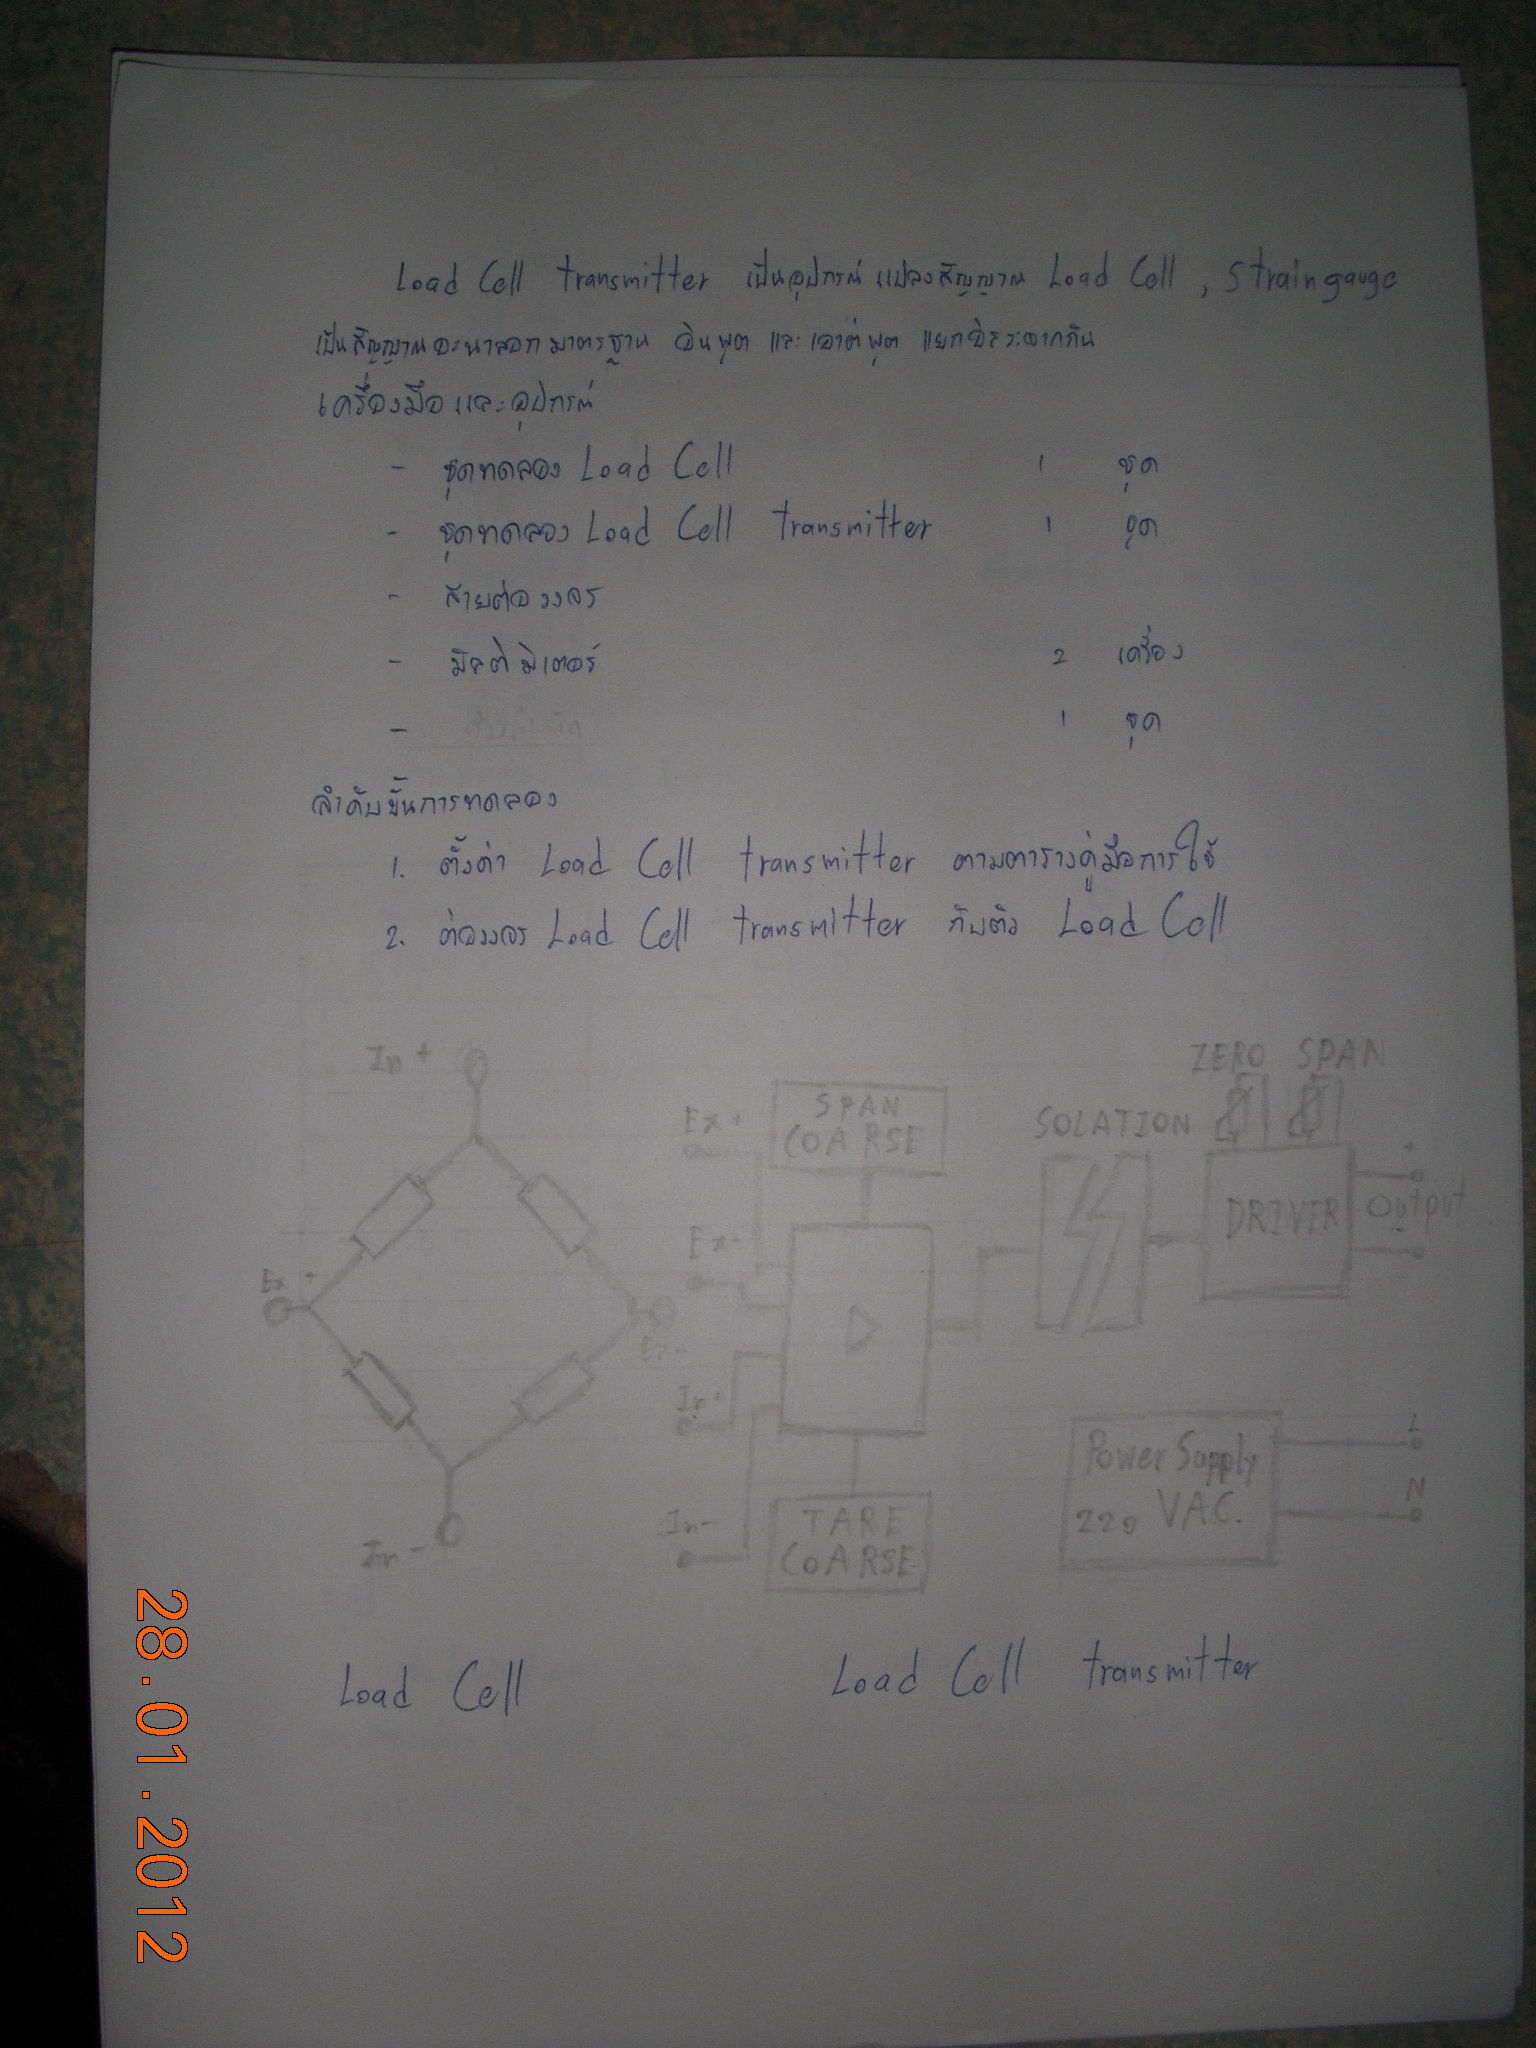 Load Cell transmitter เป็นอุปกรณ์แปลงสัญญาณ Load Cell , Strain gauge
เป็นสัญญาณอะนาลอกมาตรฐาน อินพุต และเอาต์พุต แยกอิสระจากกัน
เครื่องมือและอุปกรณ์
- ชุดทดลอง Load Cell 1 ชุด
- ชุดทดลอง Load Cell transmitter 1 ชุด
- สายต่อวงจร
- มัลติมิเตอร์ 2 เครื่อง
- 1 ชุด
ลำดับขั้นการทดลอง
1. ตั้งค่า Load Cell transmitter ตามตารางคู่มือการใช้
2. ต่อวงจร Load Cell transmitter กับตัว Load Cell
In +
Ex +
Ex -
In -
Load Cell
ZERO SPAN
SPAN
COARSE
SOLATION
Ex +
DRIVER
+
Output
-
Ex -
In +
In -
TARE
COARSE
Power Supply
220 VAC.
L
N
Load Cell transmitter
28.01.2012